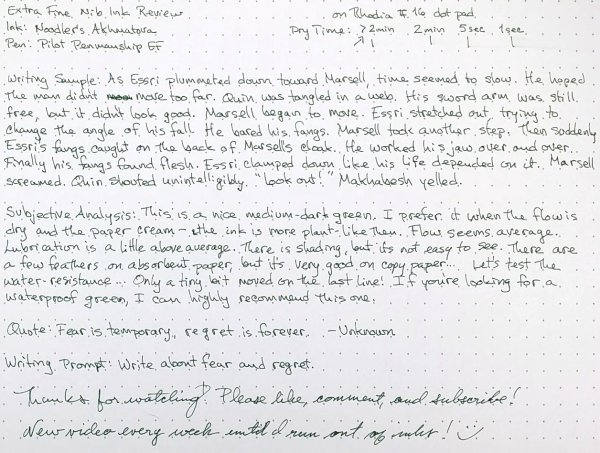 Extra Fine Nib Ink Review on Rhodia # 16 dot pad
Ink: Noodler's Akhmatova Dry Time: >2min 2min 5sec 1sec
Pen: Pilot Penmanship EF
Writing Sample: As Essri plummeted down toward Marsell, time seemed to slow. He hoped
the man didn't move too far. Quin was tangled in a web. His sword arm was still
free, but it didn't look good. Marsell began to move. Essri stretched out, trying to
change the angle of his fall. He bared his fangs. Marsell took another step. Then suddenly
Essri's fangs caught on the back of Marsell's cloak. He worked his jaw over and over...
Finally his fangs found flesh. Essri clamped down like his life depended on it. Marsell
screamed. Quin shouted unintelligibly. "Look out!" Makhabesh yelled.
Subjective Analysis: This is a nice medium-dark green. I prefer it when the flow is
dry and the paper cream - the ink is more plant-like then. Flow seems average.
Lubrication is a little above average. There is shading, but it's not easy to see. There are
a few feathers on absorbent paper, but it's very good on copy paper... Let's test the
water-resistance... Only a tiny bit moved on the last line! If you're looking for a
waterproof green, I can highly recommend this one.
Quote: Fear is temporary, regret is forever. - Unknown
Writing Prompt: Write about fear and regret.
Thanks for watching! Please like, comment, and subscribe!
New video every week until I run out of inks! :)